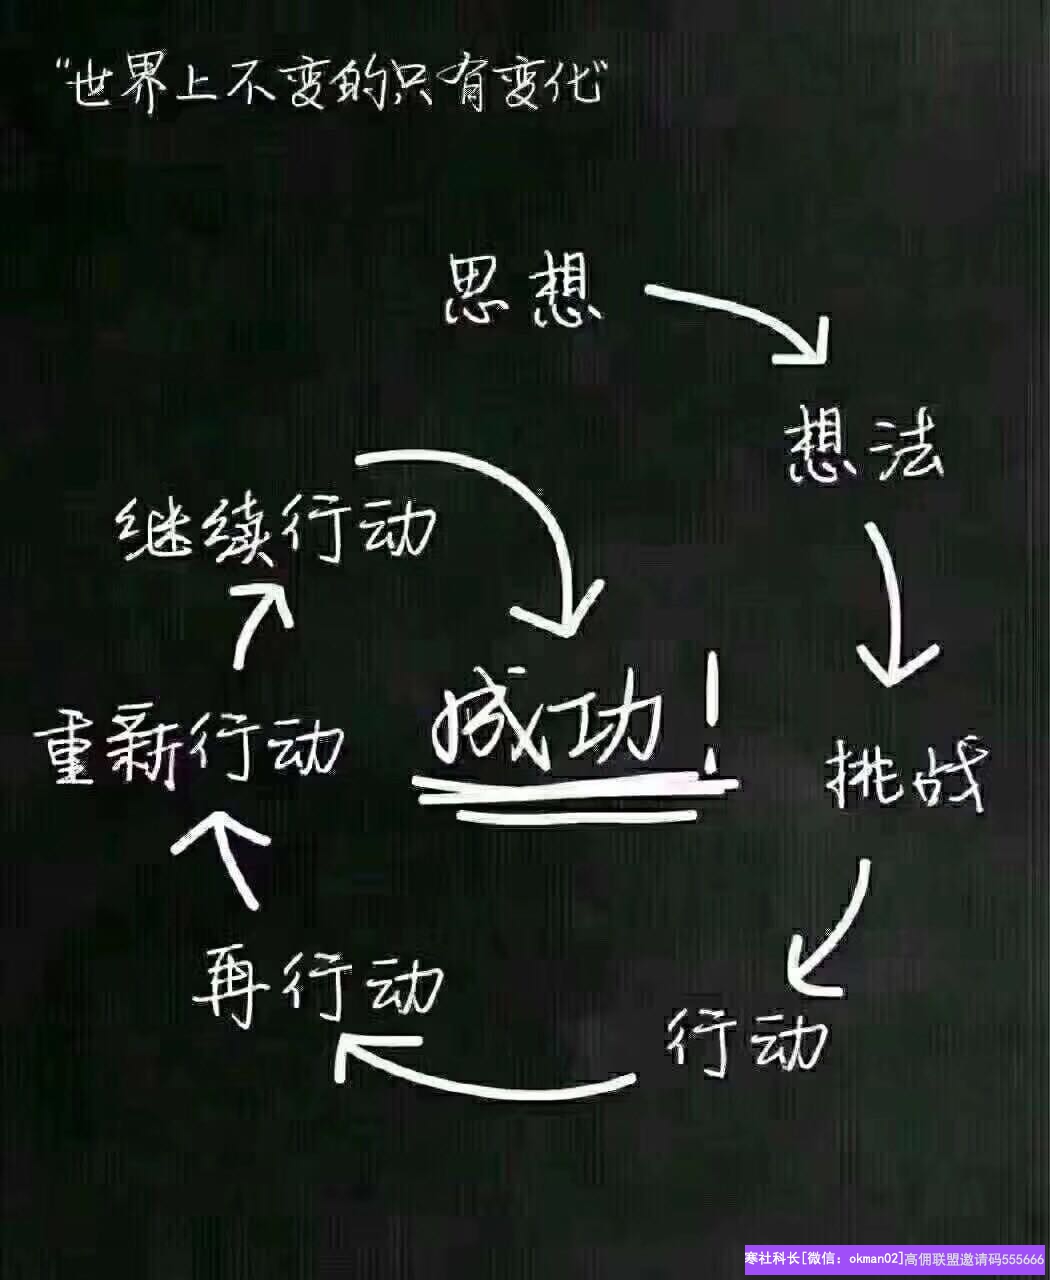 “世界上不变的只有变化”
思想
想法
挑战
行动
再行动
重新行动
继续行动
成功！
寒社科长[微信：okman02]高佣联盟邀请码555666